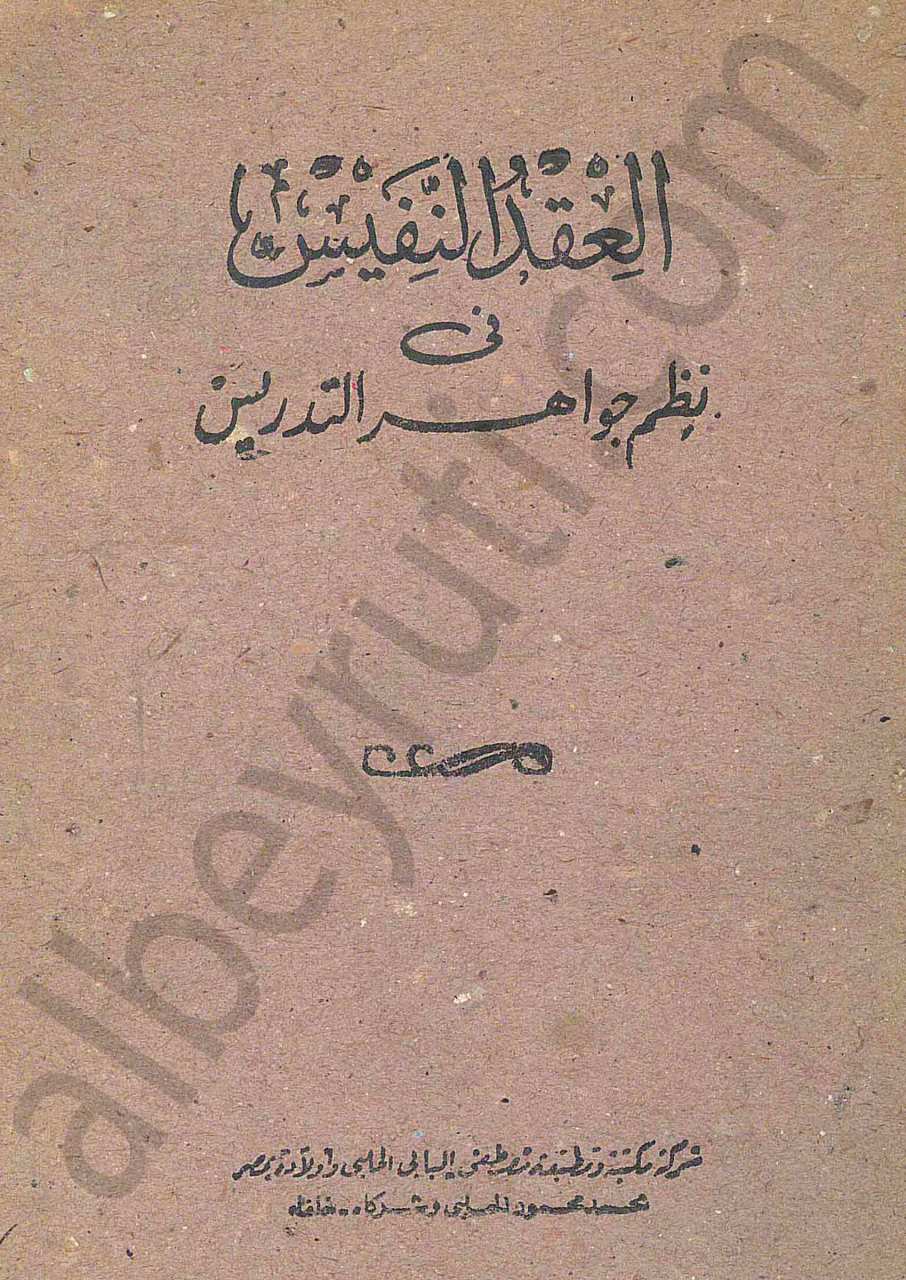 العِقْدُ النَّفِيْسُ
فى
نظم جواهر التدريس
شركة مكتبة ومطبعة مصطفى البابى الحلبى وأولاده بمصر
محمد محمود الحلبى وشركاه - خلفاء
albeyruti.com